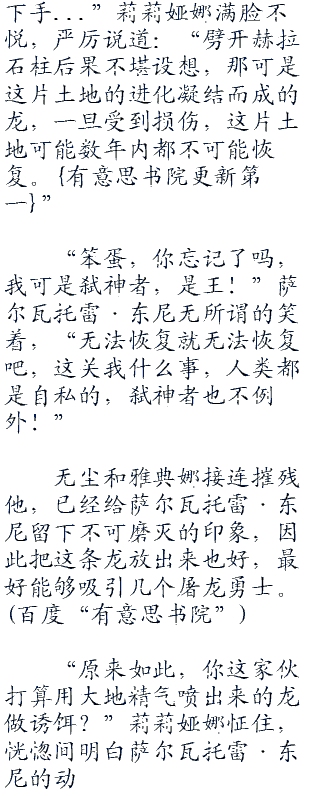 下手...”莉莉娅娜满脸不
悦，严厉说道：“劈开赫拉
石柱后果不堪设想，那可是
这片土地的进化凝结而成的
龙，一旦受到损伤，这片土
地可能数年内都不可能恢
复。{有意思书院更新第
一}”
“笨蛋，你忘记了吗，
我可是弑神者，是王！”萨
尔瓦托雷·东尼无所谓的笑
着，“无法恢复就无法恢复
吧，这关我什么事，人类都
是自私的，弑神者也不例
外！”
无尘和雅典娜接连摧残
他，已经给萨尔瓦托雷·东
尼留下不可磨灭的印象，因
此把这条龙放出来也好，最
好能够吸引几个屠龙勇士。
(百度“有意思书院”)
“原来如此，你这家伙
打算用大地精气喷出来的龙
做诱饵？”莉莉娅娜怔住，
恍惚间明白萨尔瓦托雷·东
尼的动